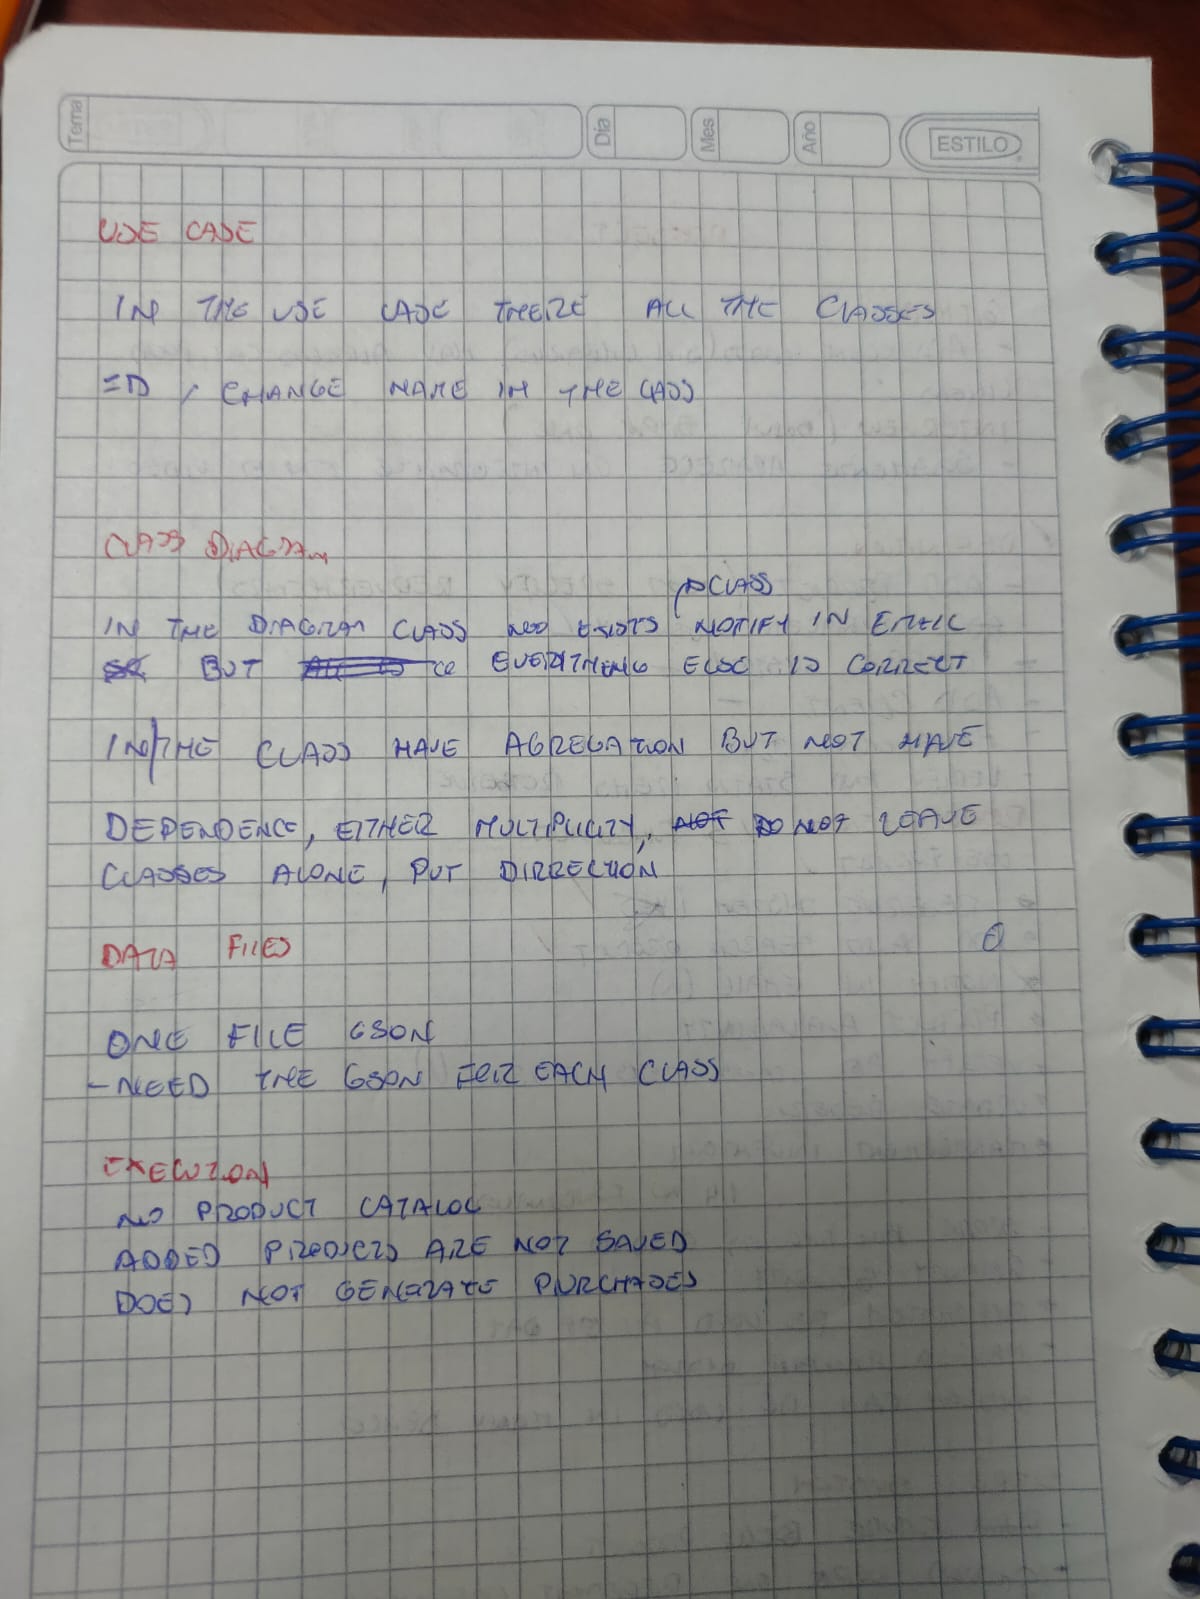 Tema
Día
Mes
Año
ESTILO
USE CASE
IN THE USE CASE THERE ALL THE CLASSES
ID, CHANGE NAME IN THE CASS
CLASS DIAGRAM
CLASS
IN THE DIAGRAM CLASS NO EXISTS NOTIFY IN EMAIL
BUT EVERITHENG ELSE IS CORRECT
IN/THE CLASS HAVE AGREGATION BUT NOT HAVE
DEPENDENCE, EITHER MULTIPLICITY, NOT DO NOT LEAVE
CLASSES ALONE, PUT DIRRECTION
DATA FILES
ONE FILE GSON
-NEED THE GSON FOR EACH CLASS
EXECUTION
NO PRODUCT CATALOG
ADDED PRODUCTS ARE NOT SAVED
DOES NOT GENERATE PURCHASES